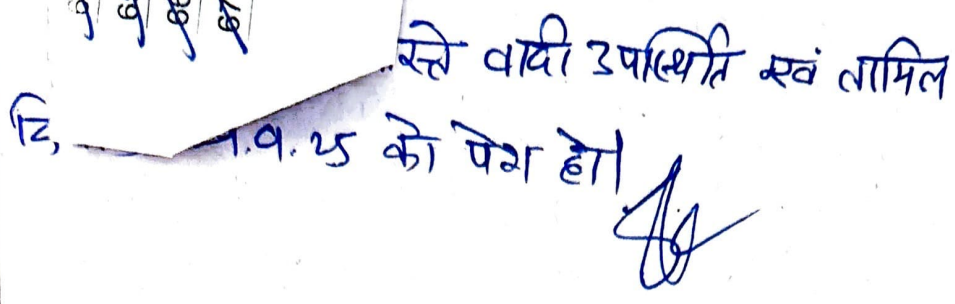 स्ते वादी उपस्थिति एवं तामिल
दि, .9.25 को पेश हो।